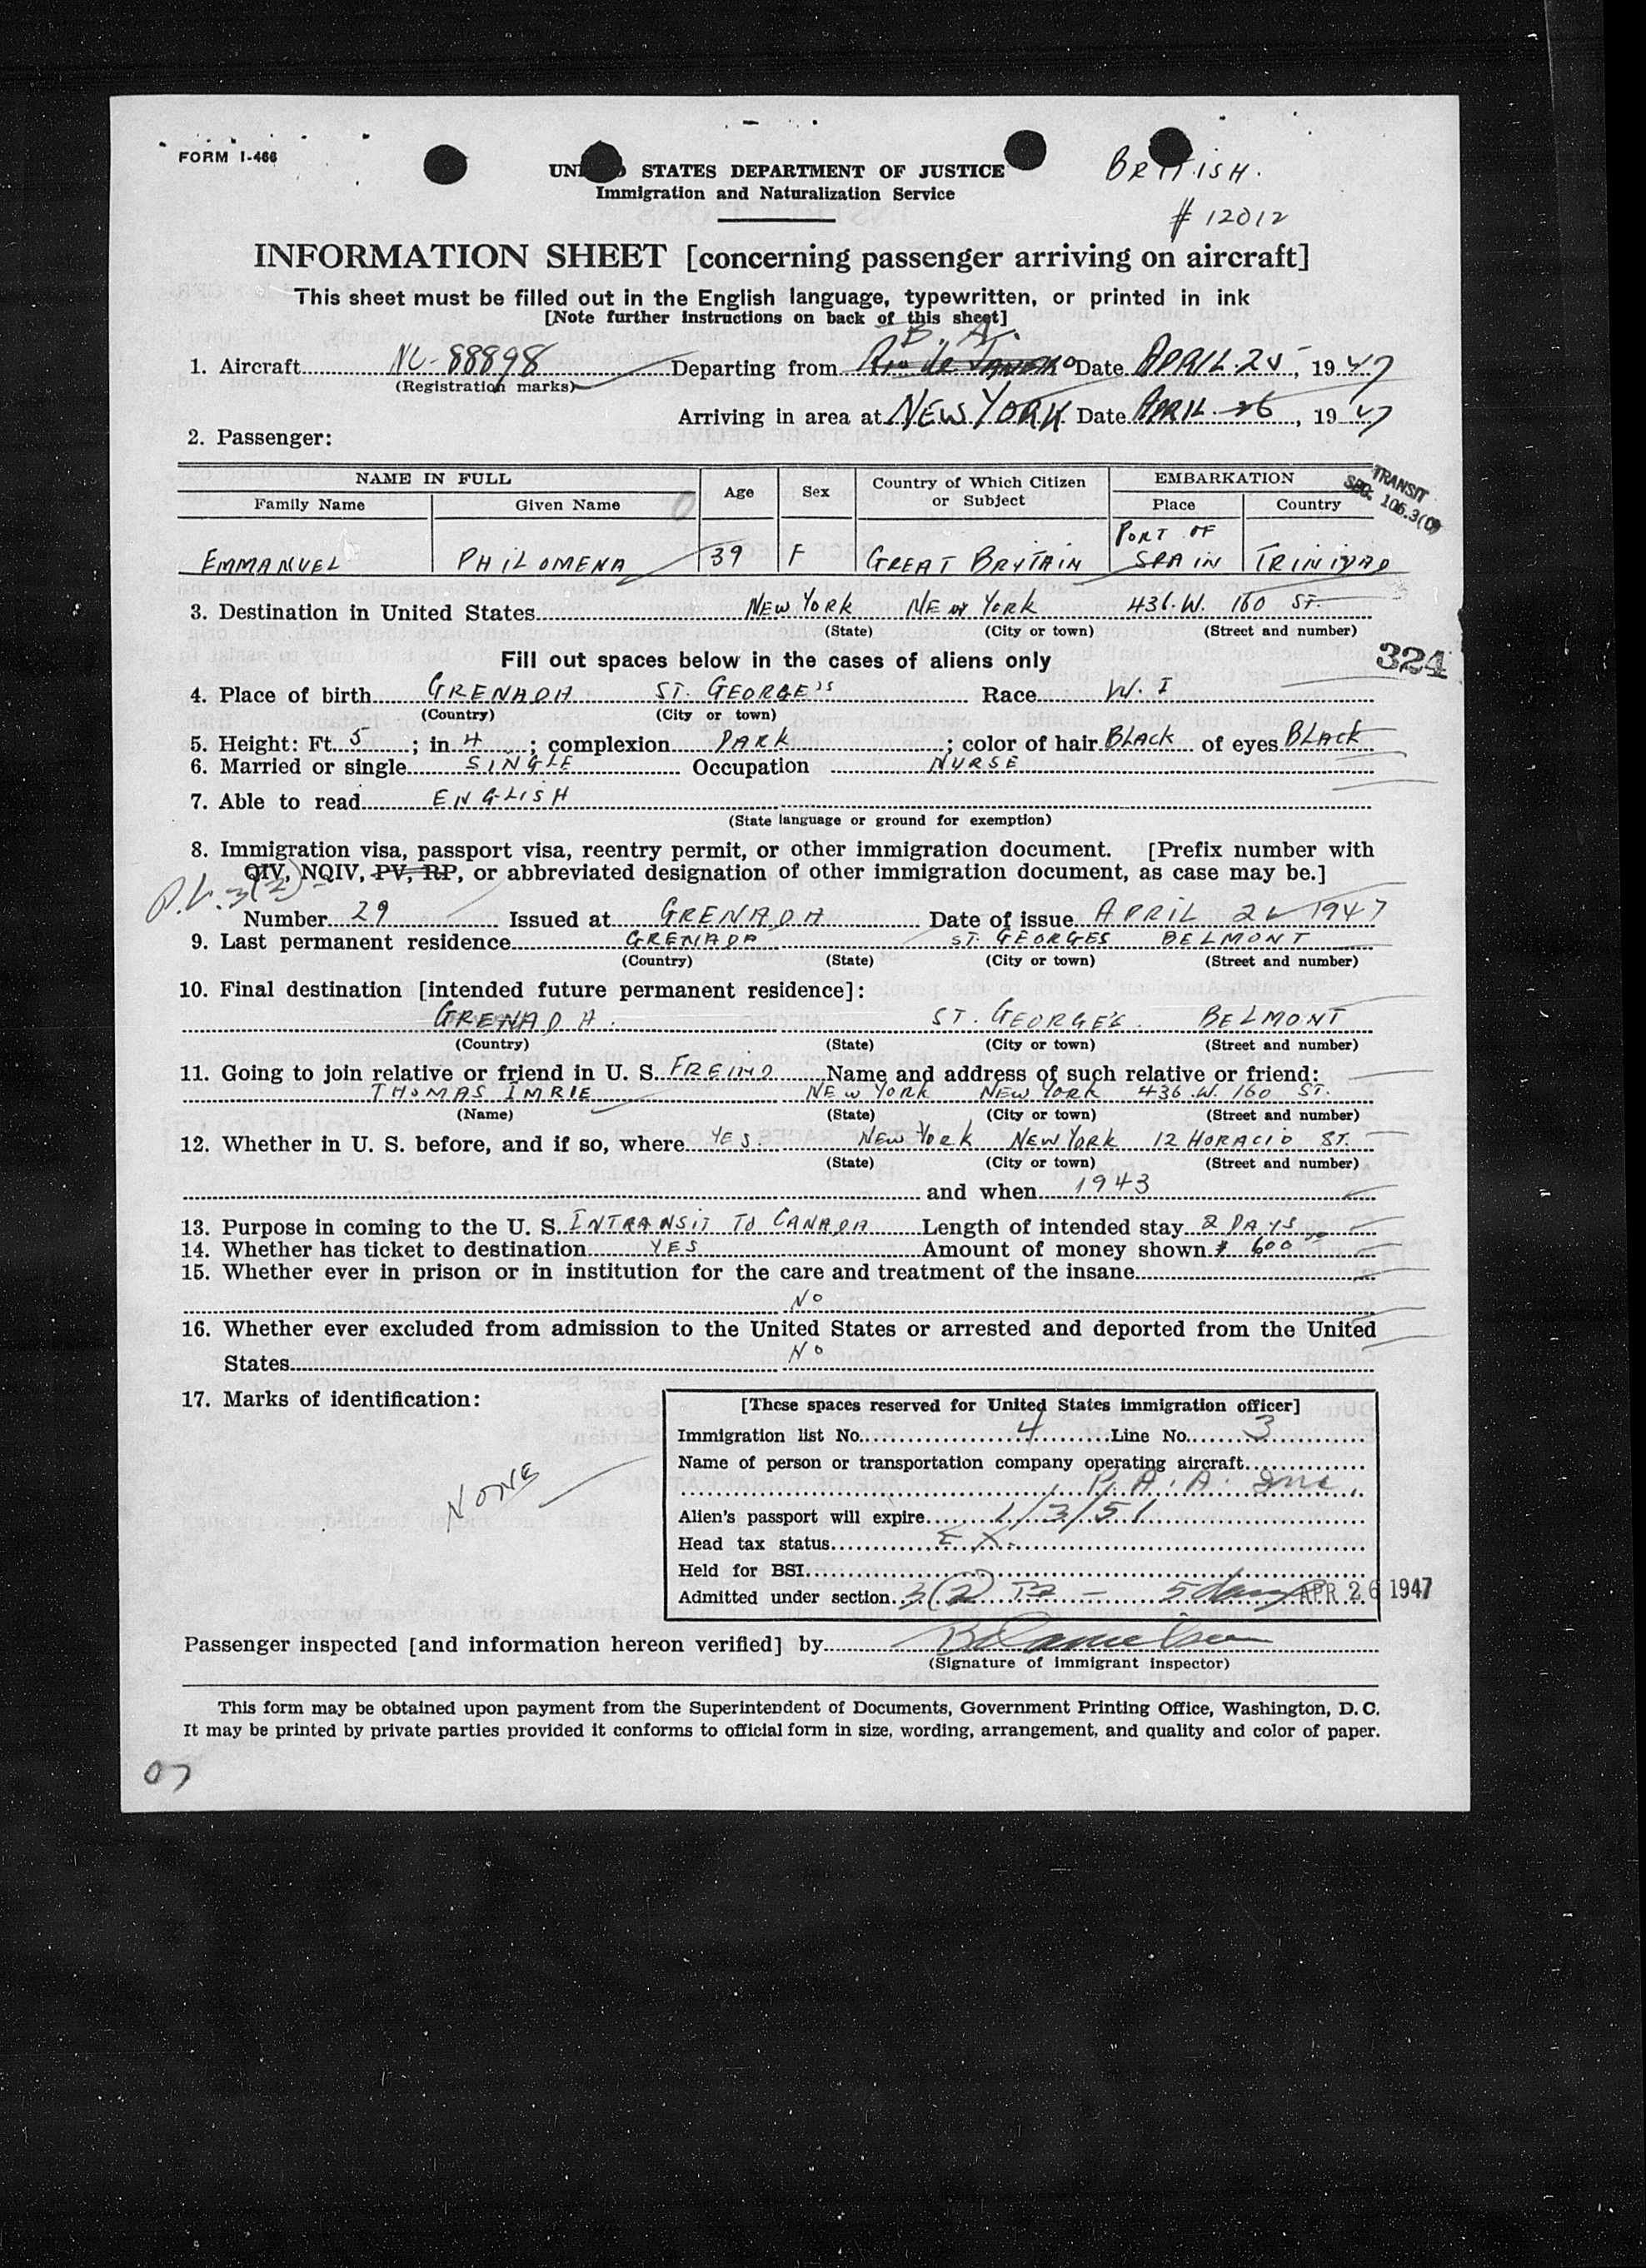 FORM I-466
BRITISH.
UNITED STATES DEPARTMENT OF JUSTICE
Immigration and Naturalization Service
# 12012
INFORMATION SHEET [concerning passenger arriving on aircraft]
This sheet must be filled out in the English language, typewritten, or printed in ink
[Note further instructions on back of this sheet]
B. A.
1. Aircraft NC-88898 Departing from Rio de Janeiro Date APRIL 25, 1947
(Registration marks)
Arriving in area at NEW YORK Date APRIL 26, 1947
2. Passenger:
NAME IN FULL Age Sex Country of Which Citizen or Subject EMBARKATION
Family Name Given Name Place Country
TRANSIT
SEC. 106.3(0)
EMMANUEL PHILOMENA 39 F GREAT BRYTAIN PORT OF SPAIN TRINIDAD
3. Destination in United States NEW YORK NEW YORK 436. W. 160 ST.
(State) (City or town) (Street and number)
Fill out spaces below in the cases of aliens only
324
4. Place of birth GRENADA ST. GEORGE'S Race W. I
(Country) (City or town)
5. Height: Ft. 5; in 4; complexion DARK; color of hair BLACK of eyes BLACK
6. Married or single SINGLE Occupation NURSE
7. Able to read ENGLISH
(State language or ground for exemption)
8. Immigration visa, passport visa, reentry permit, or other immigration document. [Prefix number with
QIV, NQIV, PV, RP, or abbreviated designation of other immigration document, as case may be.]
P.V. 3(2)-
Number 29 Issued at GRENADA Date of issue APRIL 2 1947
9. Last permanent residence GRENADA ST. GEORGES BELMONT
(Country) (State) (City or town) (Street and number)
10. Final destination [intended future permanent residence]:
GRENADA. ST. GEORGE'S. BELMONT
(Country) (State) (City or town) (Street and number)
11. Going to join relative or friend in U. S. FREIND Name and address of such relative or friend:
THOMAS IMRIE NEW YORK NEW YORK 436.W. 160 ST.
(Name) (State) (City or town) (Street and number)
12. Whether in U. S. before, and if so, where YES. NEW YORK NEW YORK 12 HORACIO ST.
(State) (City or town) (Street and number)
and when 1943
13. Purpose in coming to the U. S. INTRANSIT TO CANADA Length of intended stay 2 DAYS
14. Whether has ticket to destination YES Amount of money shown $ 600
15. Whether ever in prison or in institution for the care and treatment of the insane
NO
16. Whether ever excluded from admission to the United States or arrested and deported from the United
States NO
17. Marks of identification:
NONE
[These spaces reserved for United States immigration officer]
Immigration list No. 4 Line No. 3
Name of person or transportation company operating aircraft
P. A. A. Inc.
Alien's passport will expire 1/3/51
Head tax status EX.
Held for BSI
Admitted under section 3(2) - 5 days APR 26 1947
Passenger inspected [and information hereon verified] by
(Signature of immigrant inspector)
This form may be obtained upon payment from the Superintendent of Documents, Government Printing Office, Washington, D. C.
It may be printed by private parties provided it conforms to official form in size, wording, arrangement, and quality and color of paper.
07